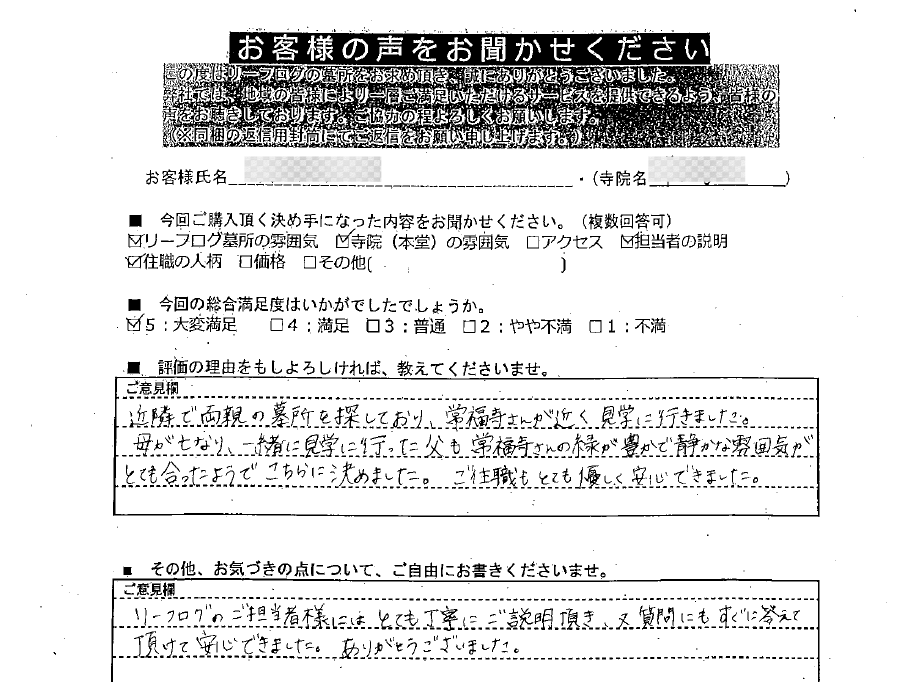 お客様の声をお聞かせください
この度はリーフログの墓所をお求め頂き、誠にありがとうございました。
当社では、地域の皆様により一層ご満足いただけるサービスを提供できるよう、皆様の
声をお聴きしております。ご協力の程よろしくお願いします。
（※同梱の返信用封筒にてご返信をお願い申し上げます。）
お客様氏名 ・（寺院名 ）
■ 今回ご購入頂く決め手になった内容をお聞かせください。（複数回答可）
☑リーフログ墓所の雰囲気 ☑寺院（本堂）の雰囲気 □アクセス ☑担当者の説明
☑住職の人柄 □価格 □その他( )
■ 今回の総合満足度はいかがでしたでしょうか。
☑5：大変満足 □4：満足 □3：普通 □2：やや不満 □1：不満
■ 評価の理由をもしよろしければ、教えてくださいませ。
ご意見欄
近隣で両親の墓所を探しており、常福寺さんが近く見学に行きました。
母が亡なり、一緒に見学に行った父も常福寺さんの緑が豊かで静かな雰囲気が
とても合ったようでこちらに決めました。 ご住職もとても優しく安心できました。
■ その他、お気づきの点について、ご自由にお書きくださいませ。
ご意見欄
リーフログのご担当者様にはとても丁寧にご説明頂き、又質問にもすぐに答えて
頂けて安心できました。ありがとうございました。